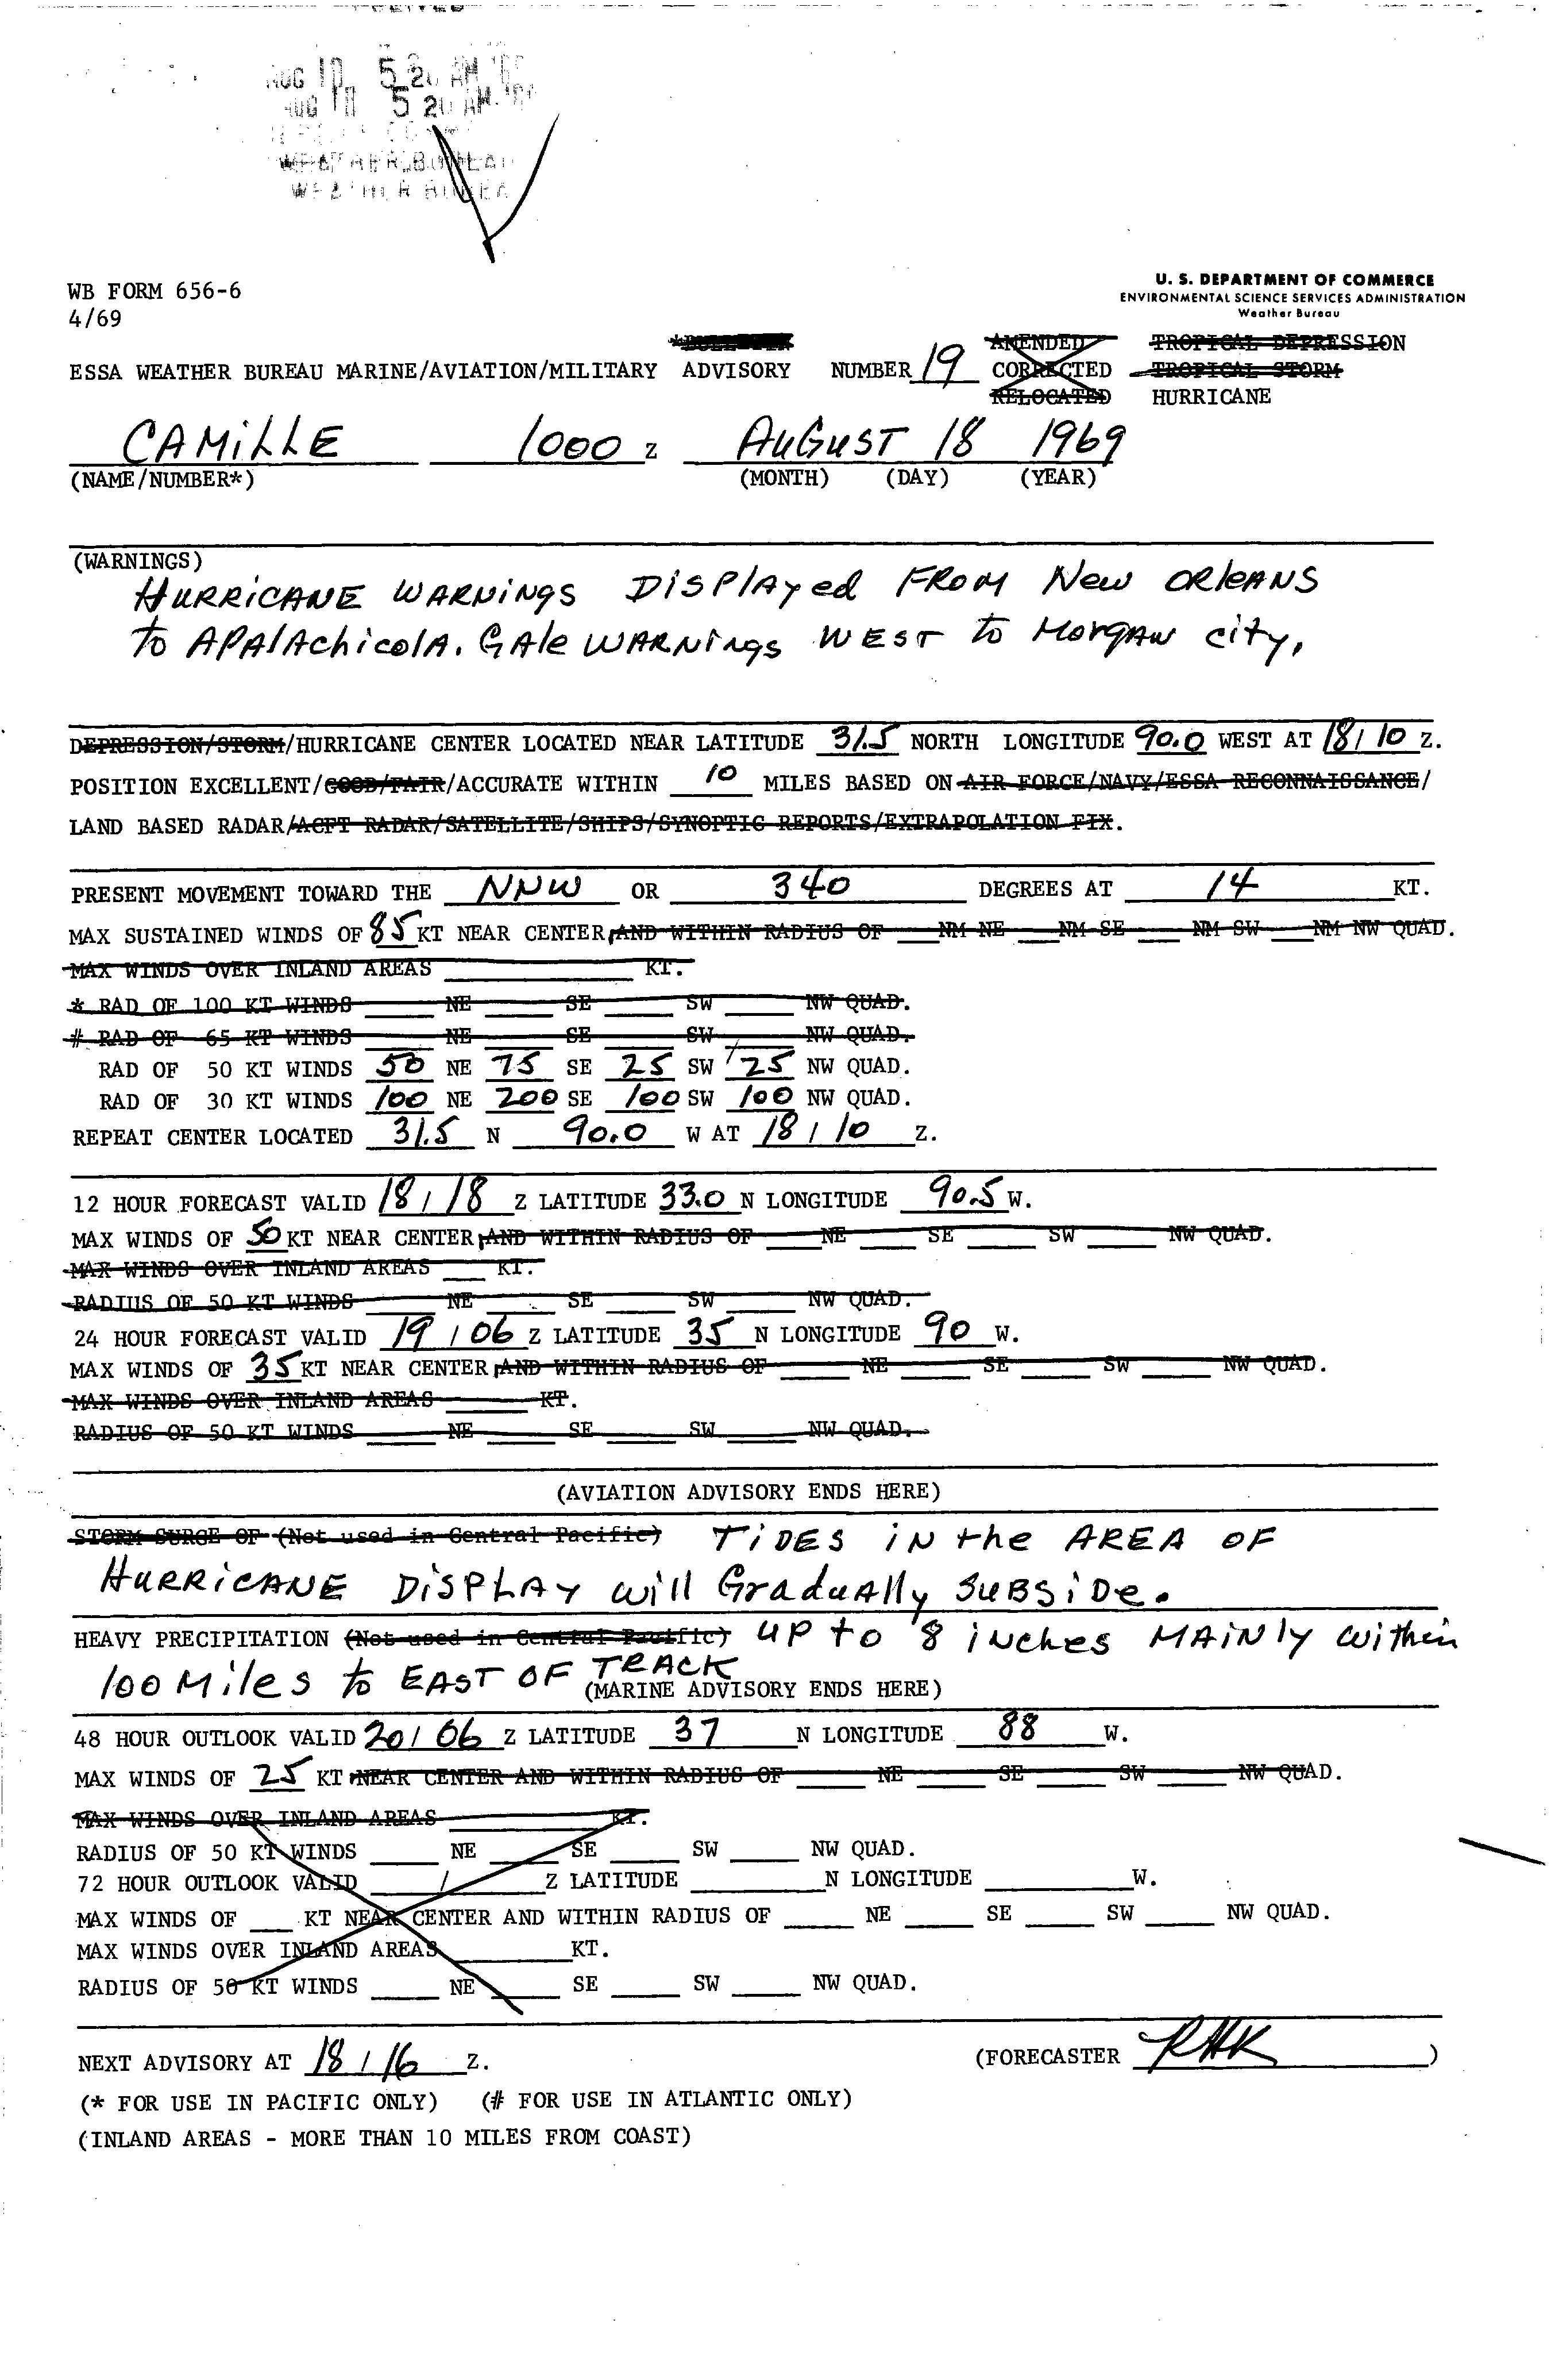 AUG 18 5 20 AM '69
AUG 18 5 20 AM '69
WEATHER BUREAU
WEATHER BUREA
WB FORM 656-6
4/69
U. S. DEPARTMENT OF COMMERCE
ENVIRONMENTAL SCIENCE SERVICES ADMINISTRATION
Weather Bureau
*BULLETIN AMENDED TROPICAL DEPRESSION
ESSA WEATHER BUREAU MARINE/AVIATION/MILITARY ADVISORY NUMBER 19 CORRECTED TROPICAL STORM
RELOCATED HURRICANE
CAMiLLE 1000 Z AuGusT 18 1969
(NAME/NUMBER*) (MONTH) (DAY) (YEAR)
(WARNINGS)
HURRiCANE WARNiNgS DiSPlAyed FROM New ORleANS
to APAlAchicolA. GAle WARNiNgs WEST to MorgAN city,
DEPRESSION/STORM/HURRICANE CENTER LOCATED NEAR LATITUDE 31.5 NORTH LONGITUDE 90.0 WEST AT 18/10 Z.
POSITION EXCELLENT/GOOD/FAIR/ACCURATE WITHIN 10 MILES BASED ON AIR FORCE/NAVY/ESSA RECONNAISSANCE/
LAND BASED RADAR/ACFT RADAR/SATELLITE/SHIPS/SYNOPTIC REPORTS/EXTRAPOLATION FIX.
PRESENT MOVEMENT TOWARD THE NNW OR 340 DEGREES AT 14 KT.
MAX SUSTAINED WINDS OF 85 KT NEAR CENTER, AND WITHIN RADIUS OF ___NM NE ___NM SE ___NM SW ___NM NW QUAD.
MAX WINDS OVER INLAND AREAS ______ KT.
* RAD OF 100 KT WINDS ____ NE ____ SE ____ SW ____ NW QUAD.
# RAD OF 65 KT WINDS ____ NE ____ SE ____ SW ____ NW QUAD.
RAD OF 50 KT WINDS 50 NE 75 SE 25 SW 25 NW QUAD.
RAD OF 30 KT WINDS 100 NE 200 SE 100 SW 100 NW QUAD.
REPEAT CENTER LOCATED 31.5 N 90.0 W AT 18/10 Z.
12 HOUR FORECAST VALID 18/18 Z LATITUDE 33.0 N LONGITUDE 90.5 W.
MAX WINDS OF 50 KT NEAR CENTER, AND WITHIN RADIUS OF ____ NE ____ SE ____ SW ____ NW QUAD.
MAX WINDS OVER INLAND AREAS ___ KT.
RADIUS OF 50 KT WINDS ____ NE ____ SE ____ SW ____ NW QUAD.
24 HOUR FORECAST VALID 19/06 Z LATITUDE 35 N LONGITUDE 90 W.
MAX WINDS OF 35 KT NEAR CENTER, AND WITHIN RADIUS OF ____ NE ____ SE ____ SW ____ NW QUAD.
MAX WINDS OVER INLAND AREAS ____ KT.
RADIUS OF 50 KT WINDS ____ NE ____ SE ____ SW ____ NW QUAD.
(AVIATION ADVISORY ENDS HERE)
STORM SURGE OF (Not used in Central Pacific) TiDES iN the AREA OF
HURRiCANE DiSPLAY will GraduAlly SUBSiDe.
HEAVY PRECIPITATION (Not used in Central Pacific) UP to 8 iNches MAiNly within
100 Miles to EAST OF TRACK
(MARINE ADVISORY ENDS HERE)
48 HOUR OUTLOOK VALID 20/06 Z LATITUDE 37 N LONGITUDE 88 W.
MAX WINDS OF 25 KT NEAR CENTER AND WITHIN RADIUS OF ____ NE ____ SE ____ SW ____ NW QUAD.
MAX WINDS OVER INLAND AREAS ______ KT.
RADIUS OF 50 KT WINDS ____ NE ____ SE ____ SW ____ NW QUAD.
72 HOUR OUTLOOK VALID ____/____ Z LATITUDE ______ N LONGITUDE ______ W.
MAX WINDS OF ___ KT NEAR CENTER AND WITHIN RADIUS OF ____ NE ____ SE ____ SW ____ NW QUAD.
MAX WINDS OVER INLAND AREAS ______ KT.
RADIUS OF 50 KT WINDS ____ NE ____ SE ____ SW ____ NW QUAD.
NEXT ADVISORY AT 18/16 Z. (FORECASTER RHK )
(* FOR USE IN PACIFIC ONLY) (# FOR USE IN ATLANTIC ONLY)
(INLAND AREAS - MORE THAN 10 MILES FROM COAST)